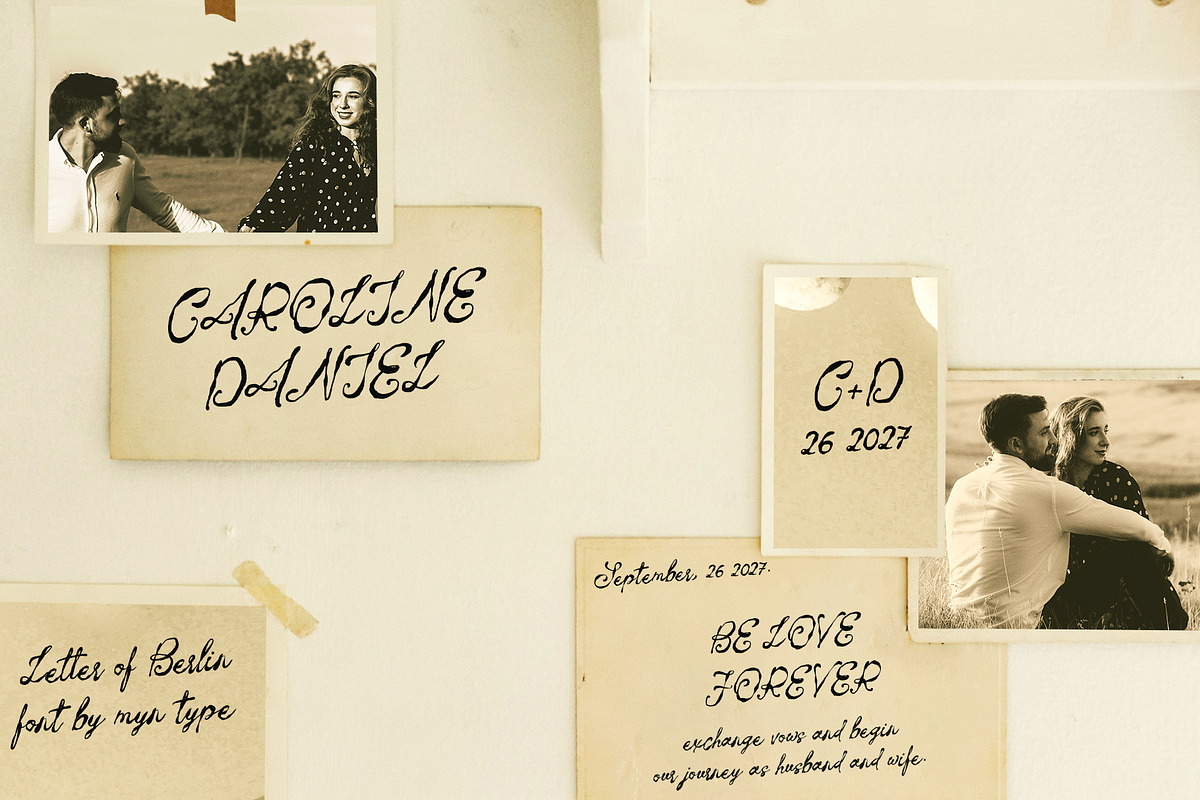 CAROLINE
DANIEL
C+D
26 2027
September, 26 2027.
BE LOVE
FOREVER
exchange vows and begin
our journey as husband and wife.
Letter of Berlin
font by myn type